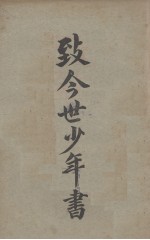 致今世少年書